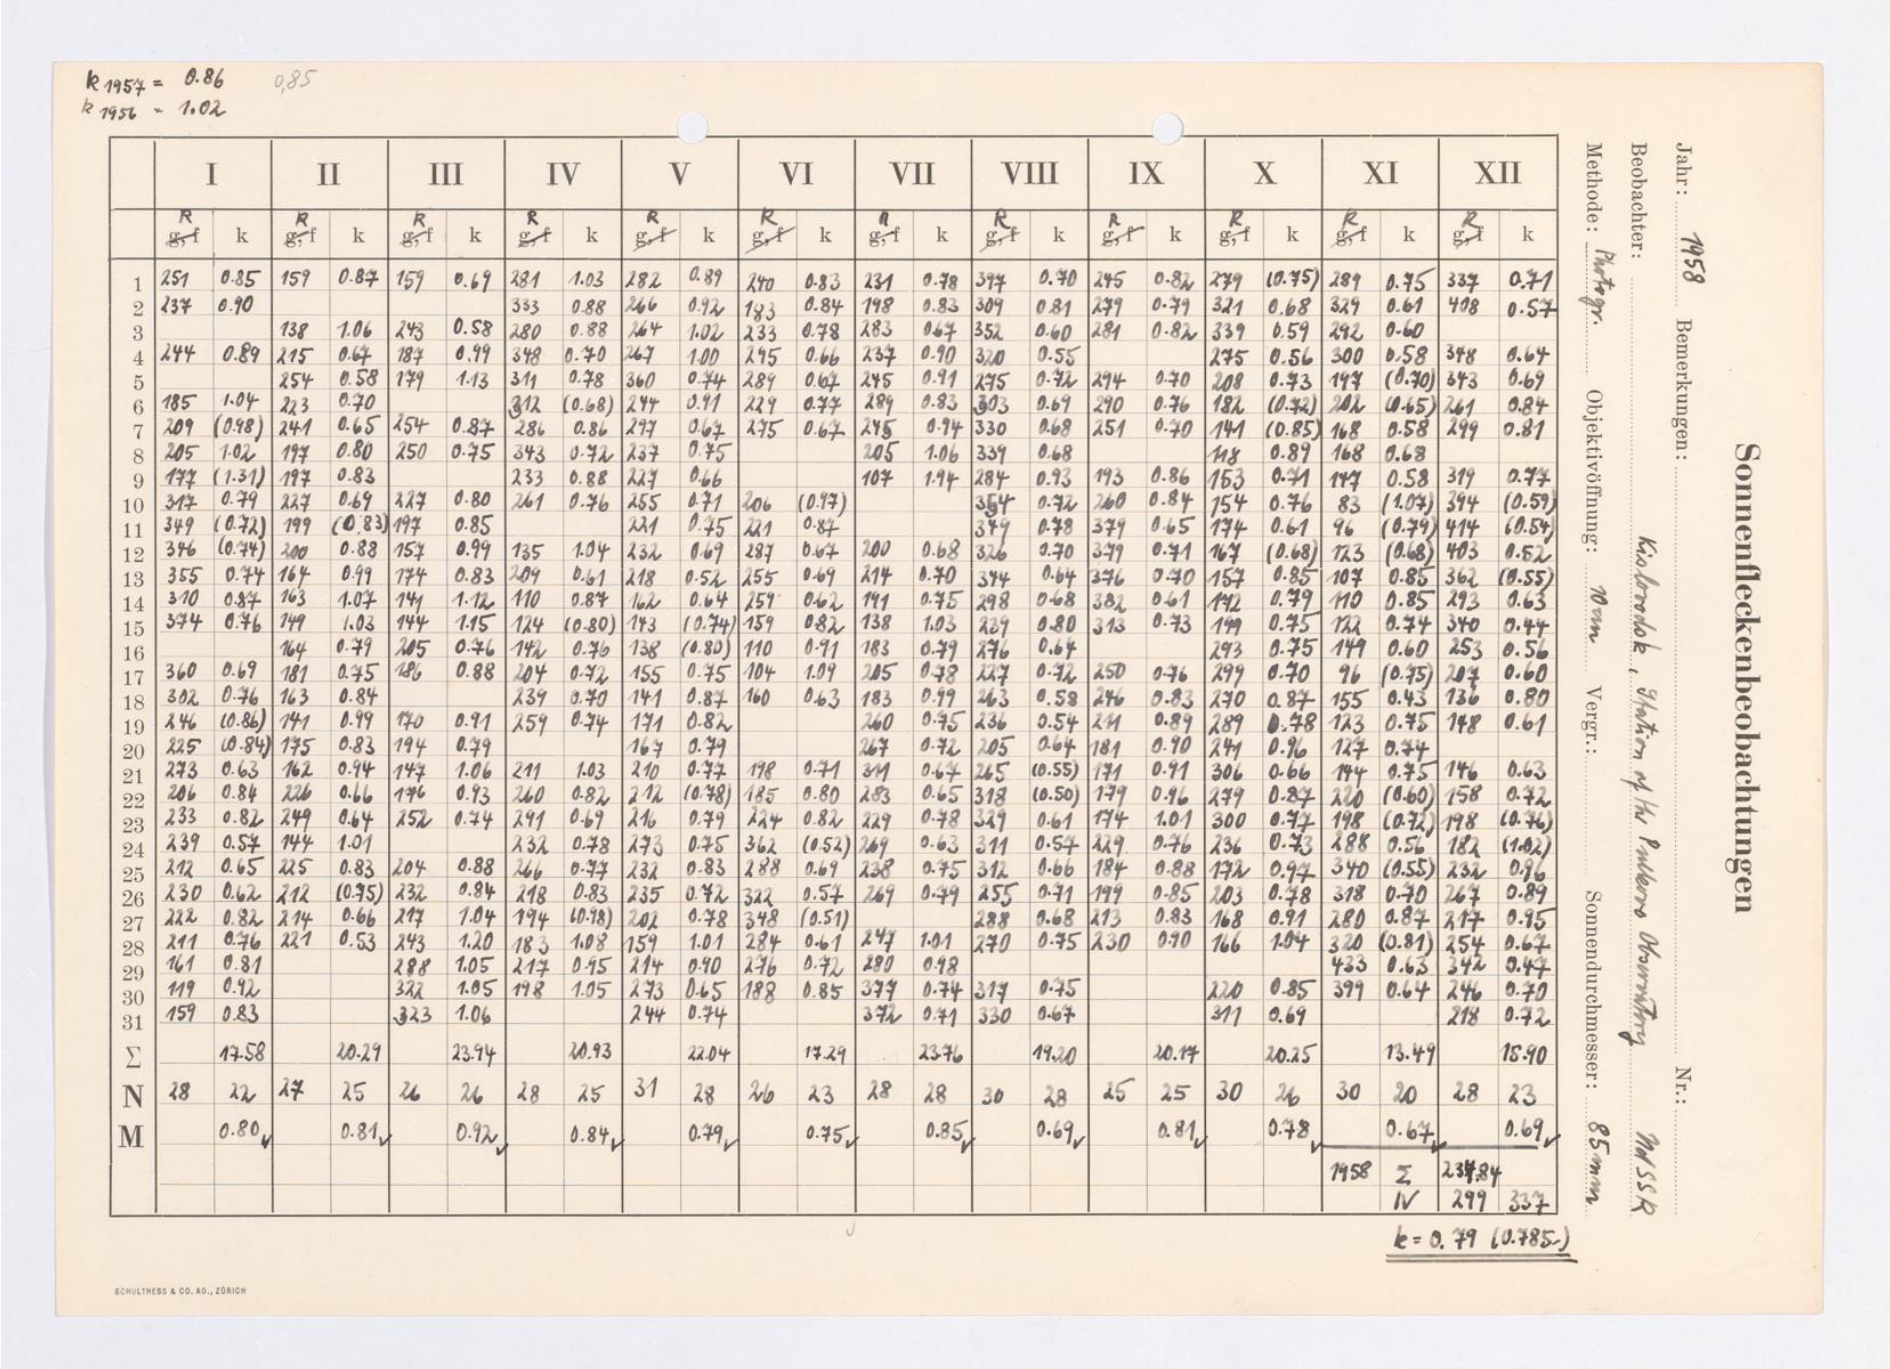 k 1957 = 0.86 0,85
k 1956 = 1.02
I II III IV V VI VII VIII IX X XI XII
R R R R R R R R R R R R
g, f k g, f k g, f k g, f k g, f k g, f k g, f k g, f k g, f k g, f k g, f k g, f k
1 251 0.85 159 0.87 159 0.69 281 1.03 282 0.89 240 0.83 231 0.78 397 0.70 245 0.82 279 (0.75) 289 0.75 337 0.71
2 237 0.90 333 0.88 266 0.92 183 0.84 198 0.83 309 0.81 279 0.79 321 0.68 329 0.61 408 0.57
3 138 1.06 243 0.58 280 0.88 264 1.02 233 0.78 283 0.67 352 0.60 281 0.82 339 0.59 292 0.60
4 244 0.89 215 0.67 187 0.99 348 0.70 267 1.00 295 0.66 237 0.90 320 0.55 275 0.56 300 0.58 348 0.64
5 254 0.58 179 1.13 311 0.78 360 0.74 289 0.67 245 0.91 275 0.72 294 0.70 208 0.73 197 (0.70) 343 0.69
6 185 1.04 223 0.70 312 (0.68) 244 0.91 229 0.77 289 0.83 303 0.69 290 0.76 182 (0.72) 202 (0.65) 261 0.84
7 209 (0.98) 241 0.65 254 0.87 286 0.86 297 0.67 275 0.67 245 0.94 330 0.68 251 0.70 141 (0.85) 168 0.58 299 0.81
8 205 1.02 197 0.80 250 0.75 343 0.72 237 0.75 205 1.06 339 0.68 118 0.89 168 0.68
9 177 (1.31) 197 0.83 233 0.88 227 0.66 107 1.94 284 0.93 193 0.86 153 0.71 147 0.58 319 0.77
10 317 0.79 227 0.69 227 0.80 261 0.76 255 0.71 206 (0.97) 354 0.72 260 0.84 154 0.76 83 (1.07) 394 (0.59)
11 349 (0.72) 199 (0.83) 197 0.85 221 0.75 221 0.87 349 0.78 379 0.65 174 0.61 96 (0.79) 414 (0.54)
12 346 (0.74) 200 0.88 157 0.99 135 1.04 232 0.69 287 0.67 200 0.68 326 0.70 379 0.71 167 (0.68) 123 (0.68) 403 0.52
13 355 0.74 164 0.99 174 0.83 209 0.61 218 0.52 255 0.69 214 0.70 344 0.64 376 0.70 157 0.85 107 0.85 362 (0.55)
14 310 0.87 163 1.07 141 1.12 110 0.87 162 0.64 259 0.62 191 0.75 298 0.68 382 0.61 142 0.79 110 0.85 293 0.63
15 374 0.76 149 1.03 144 1.15 124 (0.80) 143 (0.74) 159 0.82 138 1.03 239 0.80 313 0.73 199 0.75 122 0.74 340 0.44
16 164 0.79 205 0.76 142 0.76 138 (0.80) 110 0.91 183 0.79 276 0.64 293 0.75 149 0.60 253 0.56
17 360 0.69 181 0.75 186 0.88 204 0.72 155 0.75 104 1.09 205 0.78 227 0.72 250 0.76 299 0.70 96 (0.75) 207 0.60
18 302 0.76 163 0.84 239 0.70 141 0.87 160 0.63 183 0.99 263 0.58 246 0.83 270 0.87 155 0.43 136 0.80
19 246 (0.86) 141 0.99 170 0.91 259 0.74 171 0.82 260 0.75 236 0.54 211 0.89 289 0.78 123 0.75 148 0.61
20 225 (0.84) 175 0.83 194 0.79 167 0.79 267 0.72 205 0.64 181 0.90 241 0.96 127 0.74
21 273 0.63 162 0.94 147 1.06 211 1.03 210 0.77 198 0.71 311 0.67 265 (0.55) 171 0.91 306 0.66 144 0.75 146 0.63
22 206 0.84 226 0.66 176 0.93 260 0.82 212 (0.78) 185 0.80 283 0.65 318 (0.50) 179 0.96 279 0.87 220 (0.60) 158 0.72
23 233 0.82 249 0.64 252 0.74 291 0.69 216 0.79 224 0.82 229 0.78 329 0.61 174 1.01 300 0.77 198 (0.72) 198 (0.76)
24 239 0.57 144 1.01 232 0.78 273 0.75 362 (0.52) 269 0.63 311 0.57 229 0.76 236 0.73 288 0.56 182 (1.02)
25 212 0.65 225 0.83 204 0.88 266 0.77 232 0.83 288 0.69 238 0.75 312 0.66 184 0.88 172 0.97 340 (0.55) 232 0.96
26 230 0.62 212 (0.75) 232 0.84 218 0.83 235 0.72 322 0.57 269 0.79 255 0.71 199 0.85 203 0.78 318 0.70 267 0.89
27 222 0.82 214 0.66 217 1.04 194 (0.98) 202 0.78 348 (0.51) 288 0.68 213 0.83 168 0.91 280 0.87 217 0.95
28 211 0.76 221 0.53 243 1.20 183 1.08 159 1.01 284 0.61 247 1.01 270 0.75 230 0.90 166 1.04 320 (0.81) 254 0.67
29 161 0.81 288 1.05 217 0.95 214 0.90 276 0.72 280 0.98 433 0.63 342 0.47
30 119 0.92 322 1.05 198 1.05 273 0.65 188 0.85 377 0.74 317 0.75 220 0.85 399 0.64 246 0.70
31 159 0.83 323 1.06 244 0.74 372 0.71 330 0.67 311 0.69 218 0.72
Σ 17.58 20.29 23.94 20.93 22.04 17.29 23.76 19.20 20.17 20.25 13.49 15.90
N 28 22 27 25 26 26 28 25 31 28 26 23 28 28 30 28 25 25 30 26 30 20 28 23
M 0.80 0.81 0.92 0.84 0.79 0.75 0.85 0.69 0.81 0.78 0.67 0.69
1958 Σ 234.84
N 299 337
k = 0.79 (0.785)
SCHULTHESS & CO. AG., ZÜRICH
Sonnenfleckenbeobachtungen
Jahr: 1958 Bemerkungen: Nr.:
Beobachter: Kislovodsk, Station of the Pulkovo Observatory UdSSR
Methode: Photogr. Objektivöffnung: 10 cm Vergr.: Sonnendurchmesser: 85 mm